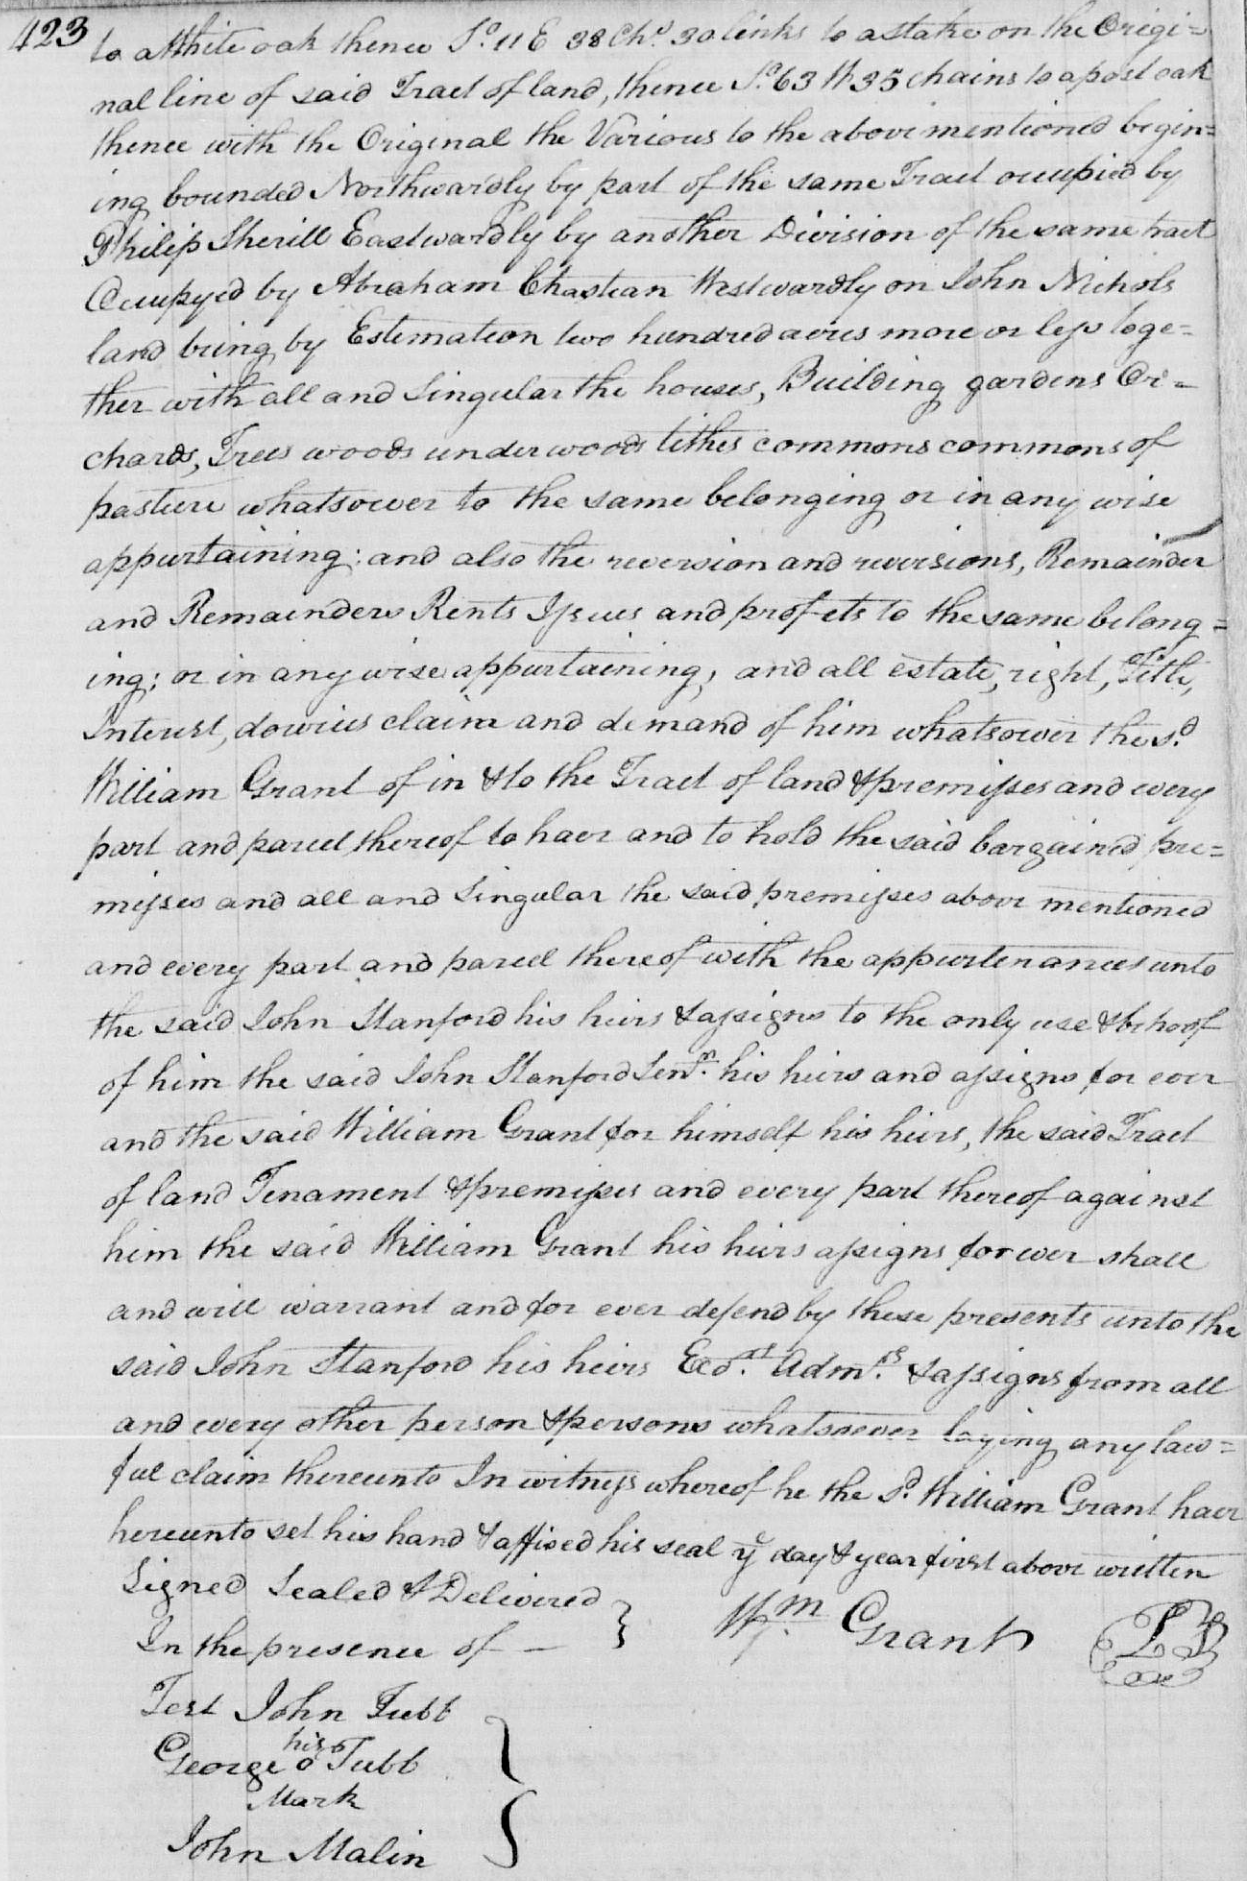 423
to a White oak thence So. 11 E 38 Chs. 30 links to a stake on the Origi=
nal line of said Tract of land, thence So. 63 W 35 chains to a post oak
thence with the Original the Various to the above mentioned begin=
ing bounded Northwardly by part of the same Tract occupied by
Philip Sherill Eastwardly by another Division of the same tract
Occupyed by Abraham Chastian Westwardly on John Nichols
land being by Estemation two hundred acres more or less toge=
ther with all and Singular the houses, Building gardens Or=
chards, Trees woods underwoods tithes commons commons of
pasture whatsoever to the same belonging or in any wise
appurtaining: and also the reversion and reversions, Remainder
and Remainders Rents Issues and profets to the same belong=
ing; or in any wise appurtaining, and all estate, right, Title,
Interest, doweries claim and demand of him whatsoever the sd.
William Grant of in & to the Tract of land & premisses and every
part and parcel thereof to haer and to hold the said bargained pre=
misses and all and Singular the said premisses above mentioned
and every part and parcel thereof with the appurtenances unto
the said John Stanford his heirs & assigns to the only use & behoof
of him the said John Stanford Senr. his heirs and assigns for ever
and the said William Grant for himself his heirs, the said Tract
of land Tenament & premisses and every part thereof against
him the said William Grant his heirs assigns forever shall
and will warrant and for ever defend by these presents unto the
said John Stanford his heirs Ecors. Admrs. & assigns from all
and every other person & persons whatsoever laying any law=
ful claim thereunto In witness whereof he the sd. William Grant haer
hereunto set his hand & affixed his seal ye day & year first above written
Signed Sealed & Delivered
In the presence of —
Wm. Grant LS
Test John Tubb
his
George o Tubb
Mark
John Malin